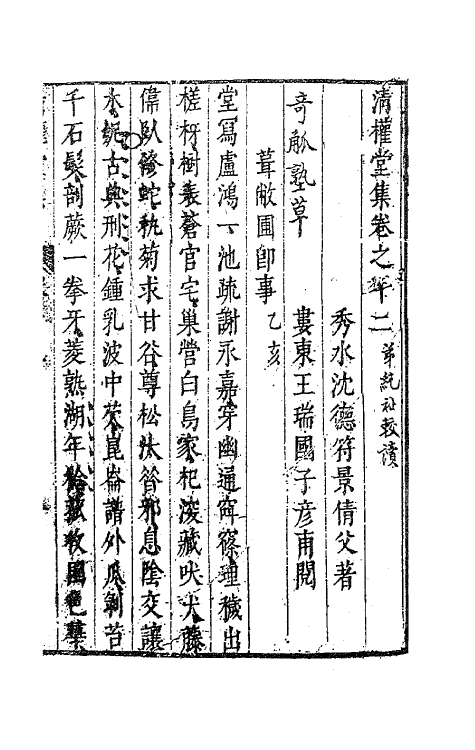 清權堂集卷之十二 弟紈社較讀
秀水沈德符景倩父著
奇觚塾草 婁東王瑞國子彥甫閱
葺敝圃即事 乙亥
堂寫盧鴻一池疏謝永嘉穿幽通窅篠理穢出
槎枒樹表蒼官宅巢營白鳥家杞深藏吠犬藤
偃臥修蛇執菊求甘谷尊松汰曾邪息陰交讓
木絕古典刑花鍾乳波中茶崑崙譜外瓜剝苔
千石髮剖蕨一拳牙菱熟湖年